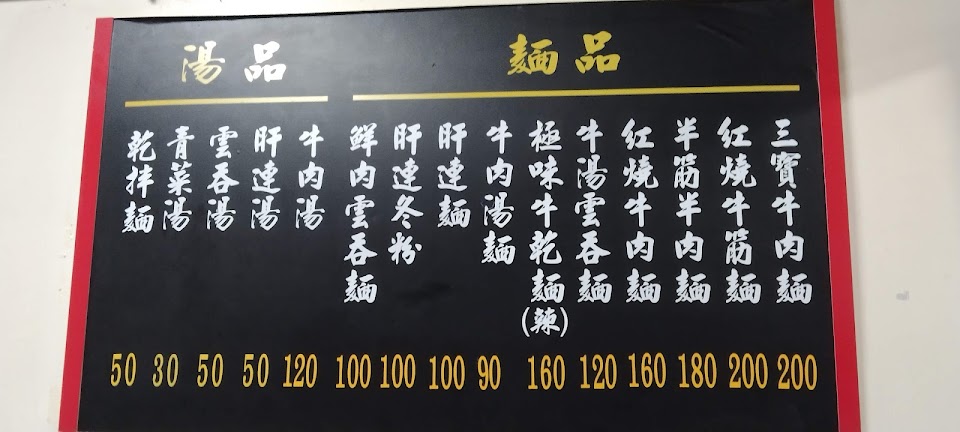 麵品
三寶牛肉麵 200
紅燒牛筋麵 200
半筋半肉麵 180
紅燒牛肉麵 160
牛湯雲吞麵 120
極味牛乾麵(辣) 160
牛肉湯麵 90
肝連麵 100
肝連冬粉 100
鮮肉雲吞麵 100
湯品
牛肉湯 120
肝連湯 50
雲吞湯 50
青菜湯 30
乾拌麵 50